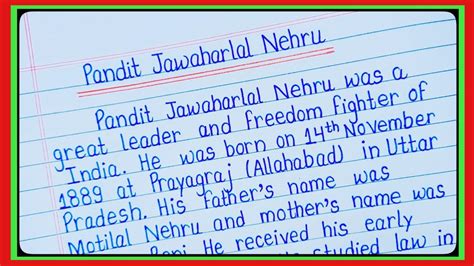 Pandit Jawaharlal Nehru
Pandit Jawaharlal Nehru was a
great leader and freedom fighter of
India. He was born on 14th November
1889 at Prayagraj (Allahabad) in Uttar
Pradesh. His father's name was
Motilal Nehru and mother's name was
Rani. He received his early
studied law in